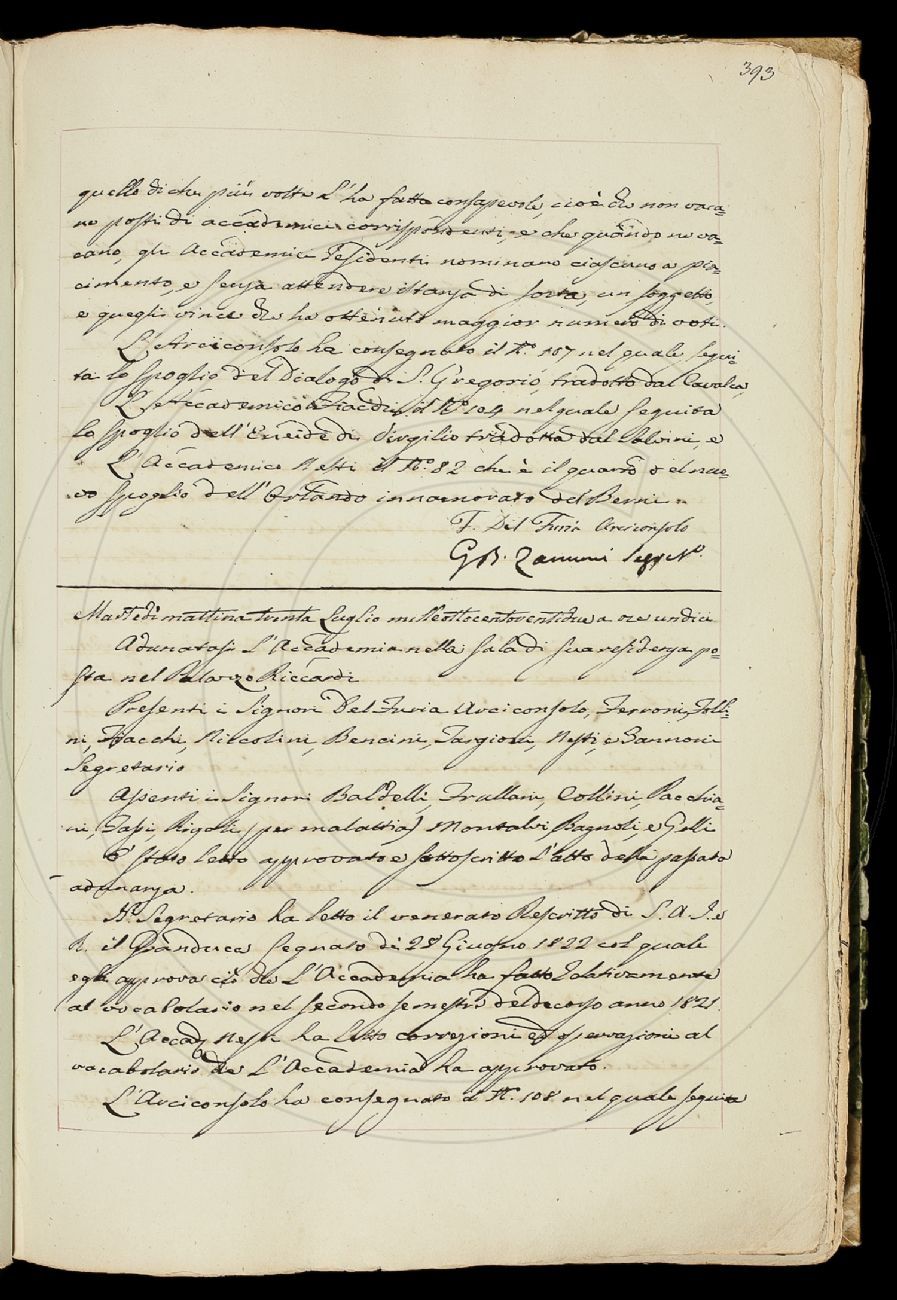 393
quello di che più volte l'ha fatto consapevole, cioè che non vaca-
no posti di accademici corrispondenti, e che quando ne va-
cano, gli Accademici residenti nominano ciascuno a pia-
cimento, e senza attendere istanza di sorta, un soggetto,
e quegli vince che ha ottenuto maggior numero di voti.
L'Arciconsolo ha consegnato il N.º 107 nel quale segui-
ta lo spoglio del Dialogo di S. Gregorio, tradotto dal Cavalca,
L'Accademico Fiacchi il N.º 104 nel quale seguita
lo spoglio dell'Eneide di Virgilio tradotta dal Salvini, e
L'Accademico Nesti il N.º 82 che è il quarto del nuo-
vo spoglio dell'Orlando innamorato del Berni.
F. Del Furia Arciconsolo
G. B. Zannoni Segret.º
Martedì mattina trenta Luglio milleottocentoventidue a ore undici
Adunatasi L'Accademia nella sala di sua residenza po-
sta nel Palazzo Riccardi
Presenti i Signori Del Furia Arciconsolo, Ferroni, Folli-
ni, Fiacchi, Niccolini, Bencini, Targioni, Nesti, e Zannoni
Segretario
Assenti i Signori Baldelli, Frullani, Collini, Pacchia-
ni, Tassi, Rigoli (per malattia) Montalvi, Bagnoli, e Gelli
È stato letto approvato e sottoscritto l'atto della passata
adunanza.
Il Segretario ha letto il venerato Rescritto di S. A. I. e
R. il Granduca segnato dì 28 Giugno 1822 col quale
egli approva ciò che L'Accademia ha fatto relativamente
al vocabolario nel secondo semestre del decorso anno 1821.
L'Accad.º Nesti ha letto correzioni ed osservazioni al
vocabolario che L'Accademia ha approvato.
L'Arciconsolo ha consegnato il N.º 108 nel quale seguita